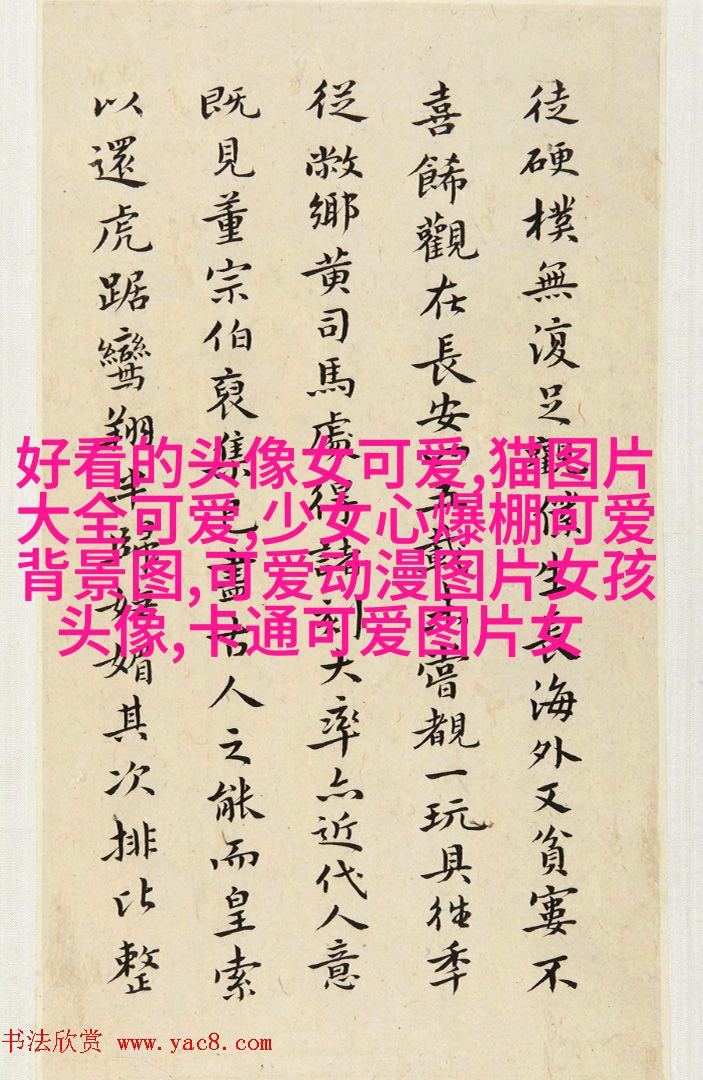 徒硬樸無復足觀僕生長海外又貧窶不
喜餙觀在長安四五載未嘗覩一玩具徃季
從敝鄉黄司馬處得諸刻大率亦近代人意
既見董宗伯裒集已盡古人之能而皇索
以還虎踞鸞翔半歸妍媚其次排比整
好看的头像女可爱,猫图片
大全可爱,少女心爆棚可爱
背景图,可爱动漫图片女孩
头像,卡通可爱图片女
书法欣赏 www.yac8.com